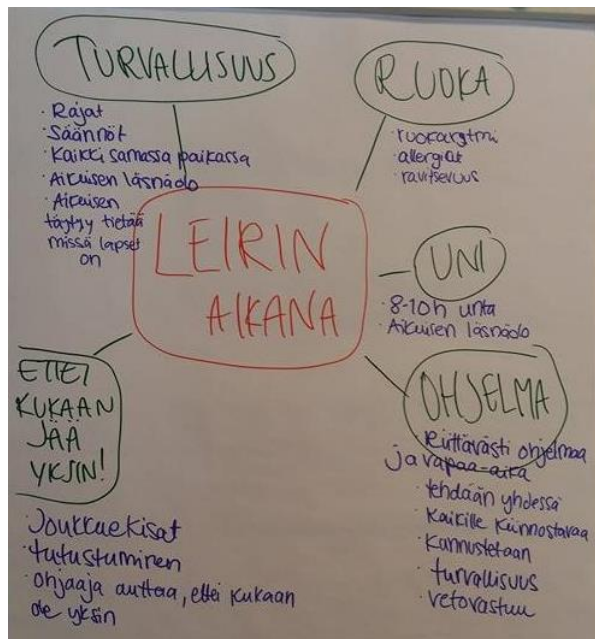 TURVALLISUUS
· Rajat
· Säännöt
· Kaikki samassa paikassa
· Aikuisen läsnäolo
· Aikuisen
täytyy tietää
missä lapset
on
RUOKA
· ruokarytmi
· allergiat
· ravitsevuus
LEIRIN
AIKANA
UNI
· 8-10h unta
· Aikuisen läsnäolo
OHJELMA
· Riittävästi ohjelmaa
ja vapaa-aika
· tehdään yhdessä
· Kaikille kiinnostavaa
· Kannustetaan
· turvallisuus
· vetovastuu
ETTEI
KUKAAN
JÄÄ
YKSIN!
· Joukkuekisat
· tutustuminen
· ohjaaja auttaa, ettei kukaan
ole yksin